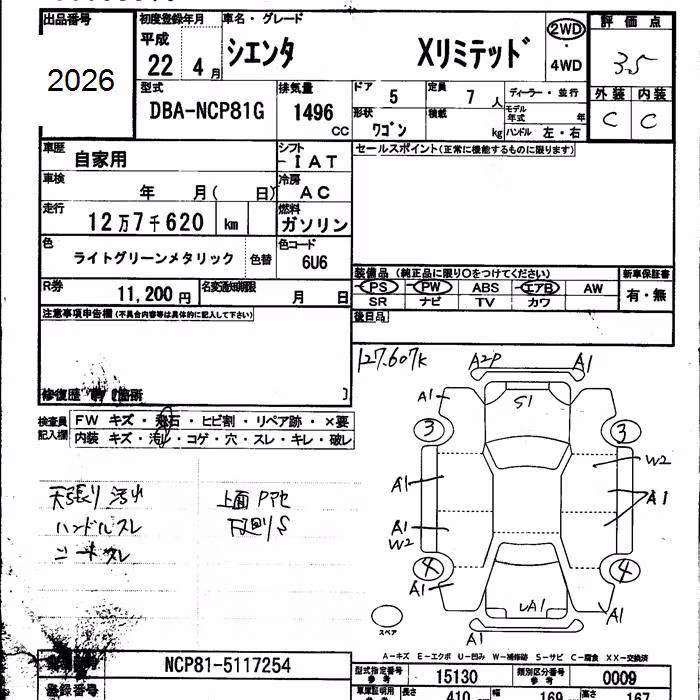 出品番号 初度登録年月 車名・グレード 評価点
2026 平成 22 4月 シエンタ Xリミテッド 2WD ・ 4WD 3.5
型式 排気量 ドア 定員 ディーラー・並行 外装 内装
DBA-NCP81G 1496 CC 5 7人 モデル年式 年 C C
形状 積載 ワゴン kg ハンドル 左・右
車歴 自家用 シフト IAT セールスポイント(正常に機能するものに限ります)
車検 年 月( 日) 冷房 AC
走行 12万7千620 km 燃料 ガソリン
色 ライトグリーンメタリック 色替 色コード 6U6
装備品(純正品に限り○をつけてください) 新車保証書
R券 11,200円 名変通知期限 月 日 PS PW ABS エアB AW 有・無
SR ナビ TV カワ
注意事項申告欄(不具合内容等は具体的に記入して下さい) 後日品
127,607K A2P A1
修復歴 箇所 A1 S1
検査員記入欄 FW キズ・飛石・ヒビ割・リペア跡・×要 3 3
内装 キズ・汚れ・コゲ・穴・スレ・キレ・破レ W2
天張り汚れ 上面Pアセ A1 A1
ハンドルスレ 下廻りS A1
シートスレ W2
4 4
A1 A1 A1
スペア A1
A-キズ E-エクボ U-凹み W-補修跡 S-サビ C-腐食 XX-交換済
NCP81-5117254 型式指定番号参考 15130 類別区分番号参考 0009
登録番号 車庫証明用 長さ 410 幅 169 高さ 167